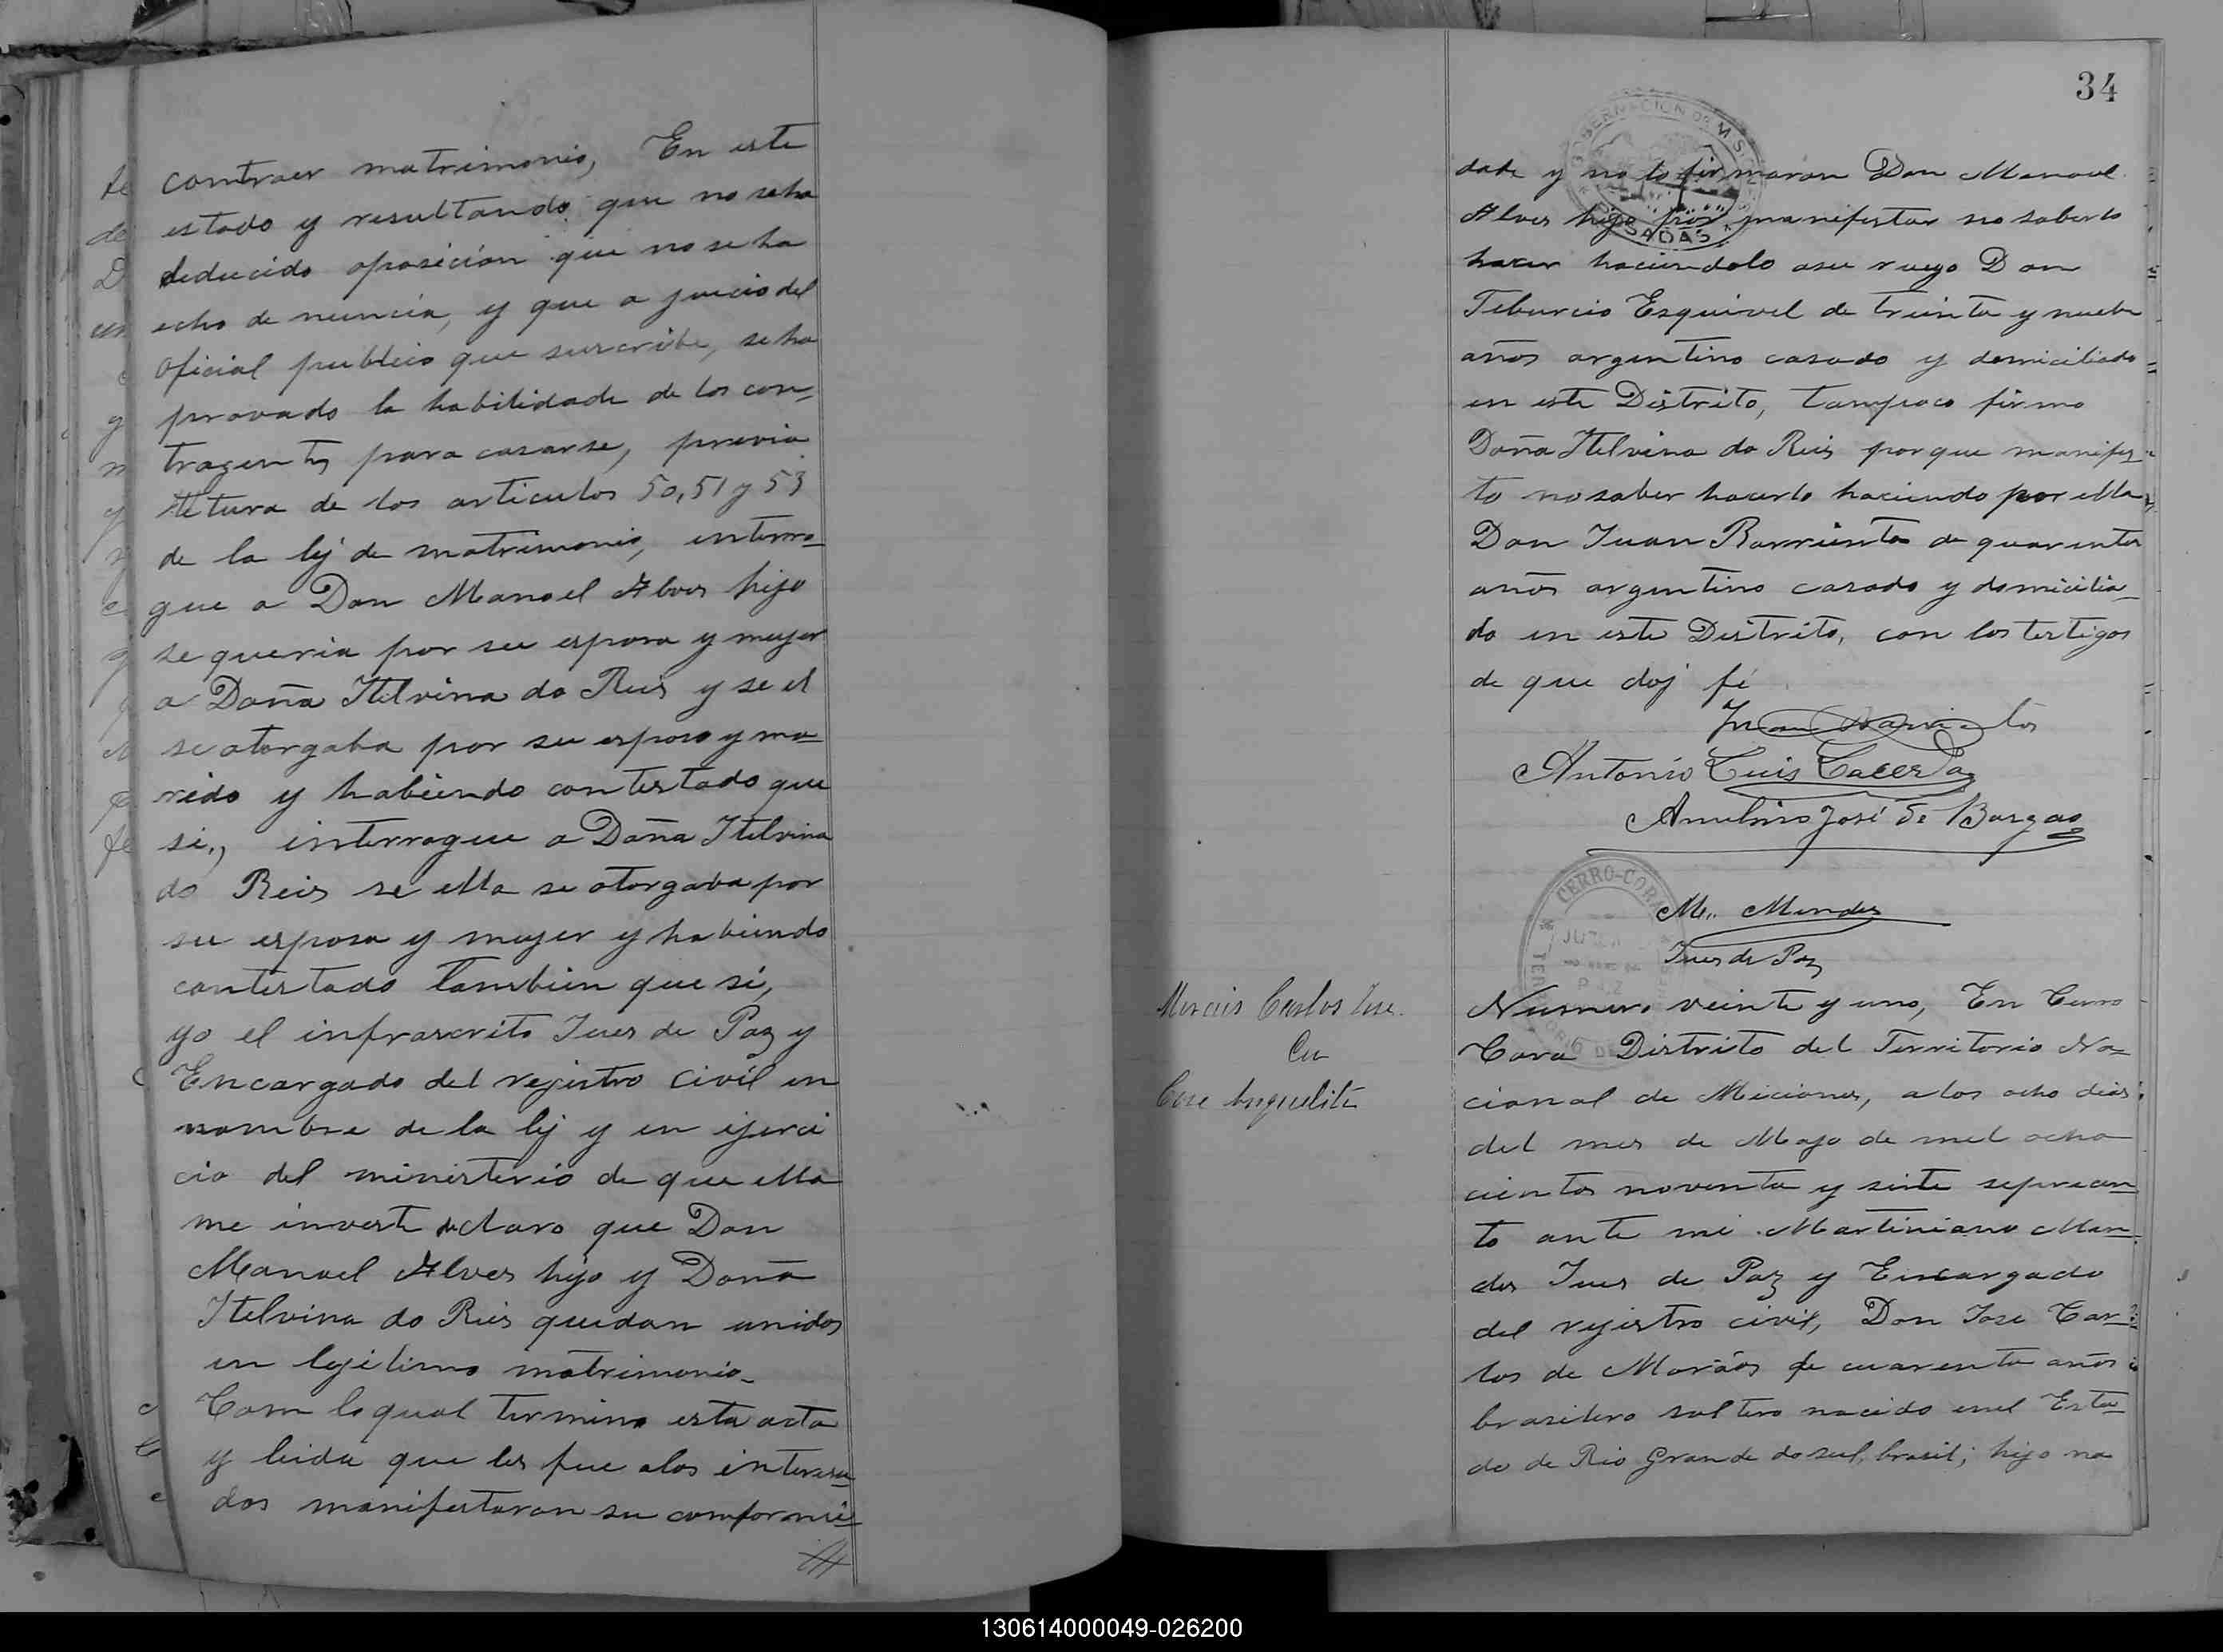 contraer matrimonio, En este
estado y resultando que no seha
deducido oposición que no se ha
echo de nuncia, y que a juicio del
oficial publico que suscribe, se ha
provado la habilidade de los con,
tragentes para casarse, previa
letura de los articulos 50, 51 y 53
de la lej de matrimonio, interro-
gue a Don Manoel Alves hijo
se queria por su esposa y mujer
a Doña Itelvina do Reis y se el
se otorgaba por su esposo y ma-
rido y habiendo contestado que
si, interrogue a Doña Itelvina
do Reis se ella se otorgaba por
su esposa y mujer y habiendo
contestado tambien que si,
yo el infrascrito Jues de Paz y
Encargado del rejistro civil en
nombre de la lej y en ejerci
cio del ministerio de que ella
me invest declaro que Don
Manuel Alves hijo y Doña
Itelvina do Reis quedan unidos
en lejitimo matrimonio.
Com loqual termino esta acta
y leida que les fue alos interesa-
dos manifestaron su comformi-
34
GOBERNACION DE MISIONES
POSADAS
dade y no lo firmaron Don Manoel
Alves hijo por manifestar no saberlo
hacer haciendolo asu ruego Don
Teburcio Esquivel de treinta y nueve
años argentino casado y domiciliado
en este Distrito, tampoco firmo
Doña Itelvina do Reis porque manifes-
to no saber hacerlo haciendo por ella
Don Juan Barrientos de quarenta
años argentino casado y domicilia-
do en este Distrito, con los testigos
de que doj fé
Juan Barrientos
Antonio Luis Lacerda
José de Bargas
CERRO-CORA
M. Mendes
Jues de Paz
Carlos Jose
Con
Numero veinte y uno, En Cerro
Cora Distrito del Territorio Na-
cional de Miciones, a los ocho dias
del mes de Majo de mel ocho
cientos noventa y siete seprecen
to ante mi Martiniano Men-
des Jues de Paz y Encargado
del rejistro civil, Don Jose Car-
los de Moráes de cuarenta años
brasilero soltero nacido enel Esta-
do de Rio Grande do sul, brasil; hijo na
130614000049-026200